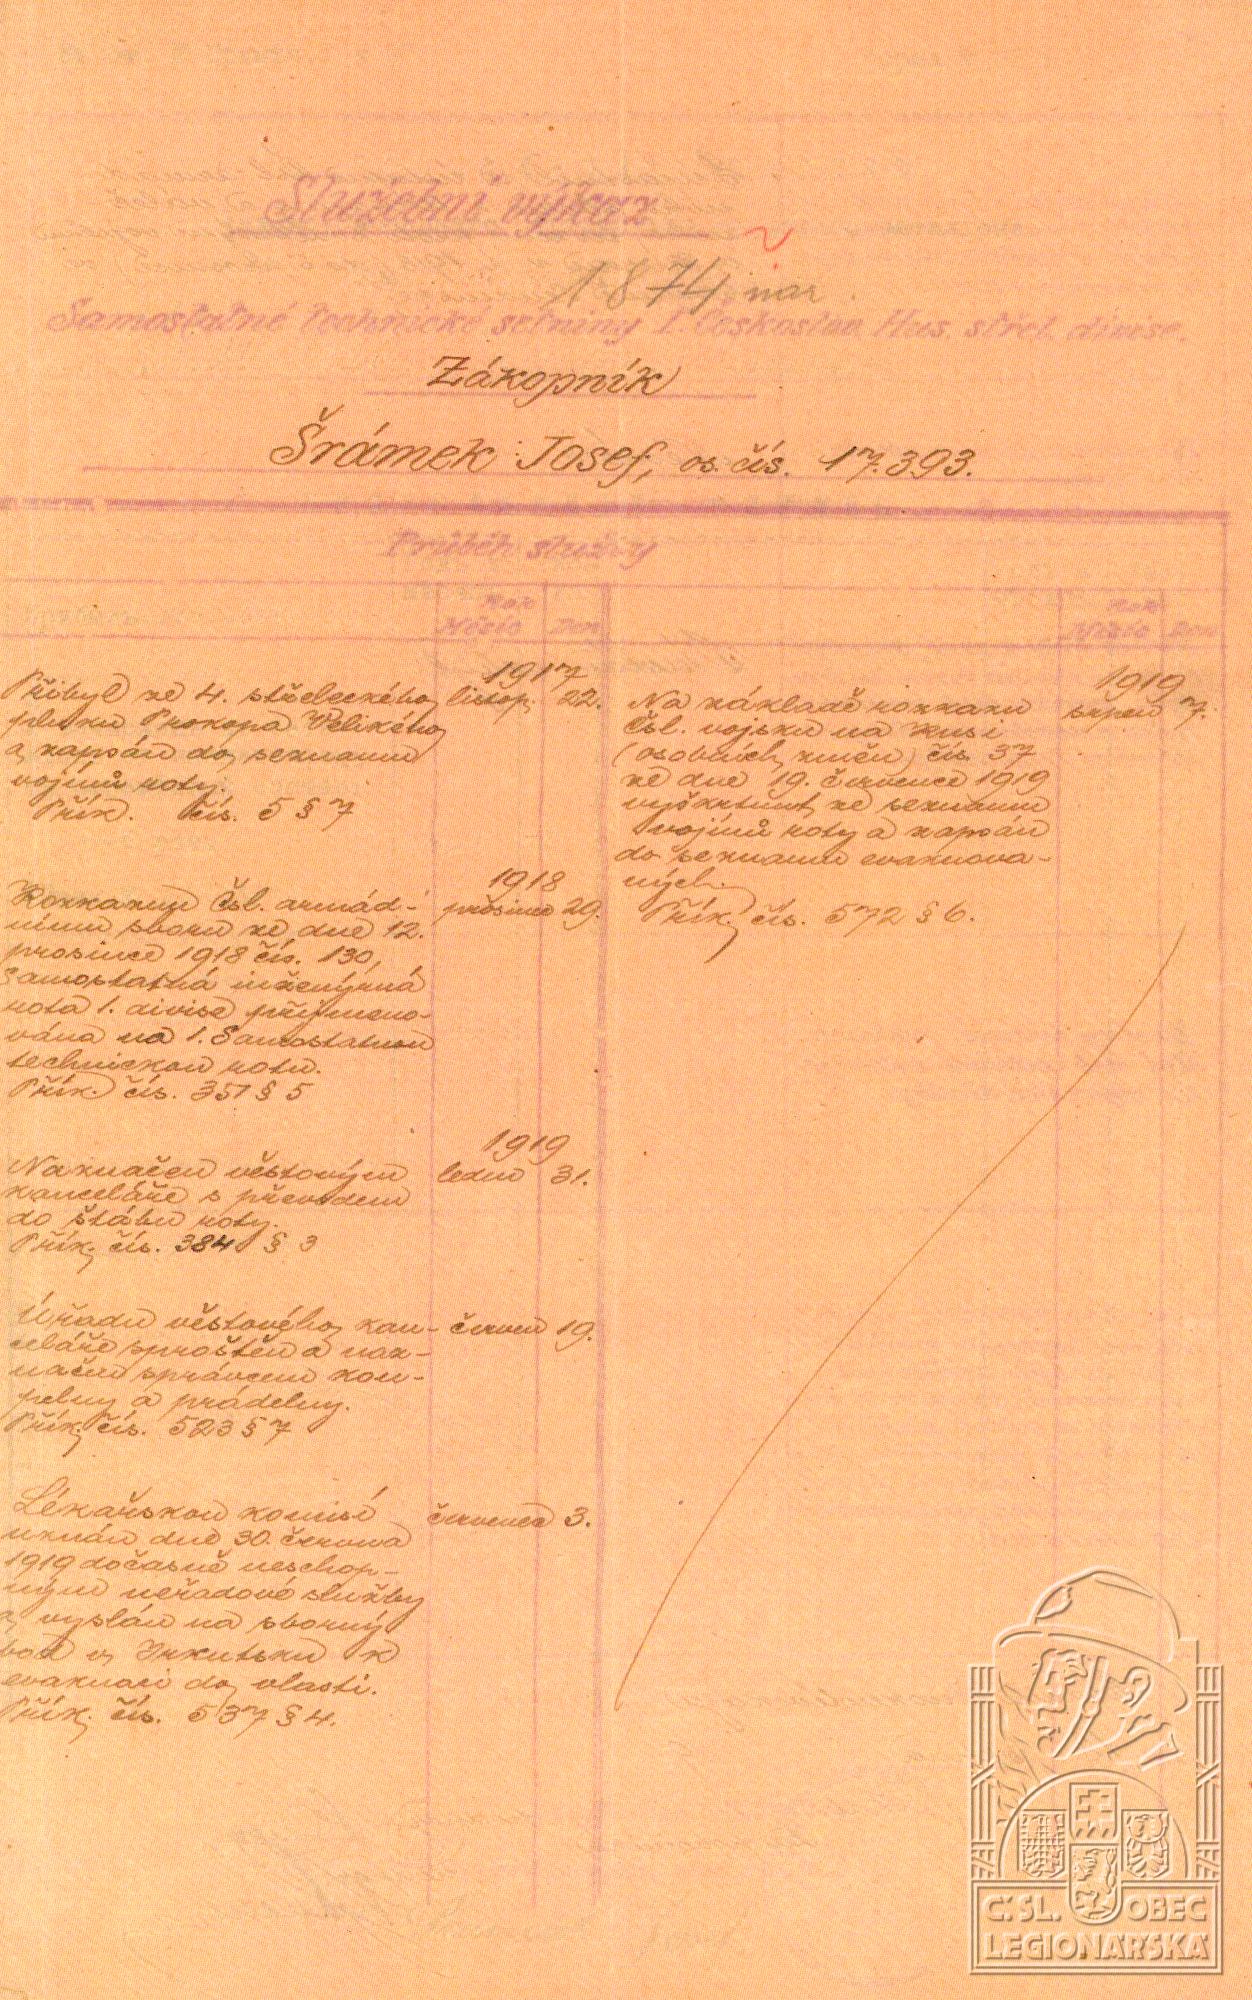 Služební výkaz
1874 nar.
Samostatné technické setniny 1. Českoslov. Hus. střel. divise.
Zákopník
Šrámek Josef, os. čís. 17.393.
Průběh služby
Rok
Měsíc Den
Rok
Měsíc Den
1917
Přibyl ze 4. střeleckého listop. 22.
pluku Prokopa Velikého
a zapsán do seznamu
vojínů roty.
Přík. čís. 5 § 7
1918
Rozkazem Čsl. armád- prosince 29.
nímu sboru ze dne 12.
prosince 1918 čís. 130,
Samostatná inženýrná
rota 1. divise přejmeno-
vána na 1. Samostatnou
technickou rotu.
Přík. čís. 351 § 5
1919
Naznačen věstovým leden 31.
kanceláře s převodem
do štábu roty.
Přík. čís. 384 § 3
Úřadu věstového kan- červen 19.
celáře sproštěn a naz-
načen správcem kou-
pelny a prádelny.
Přík. čís. 523 § 7
Lékařskou komisí červenec 3.
uznán dne 30. června
1919 dočasně neschop-
ným neřadové služby
a vyslán na sborný
bod v Irkutsku k
evakuaci do vlasti.
Přík. čís. 537 § 4.
1919
Na základě rozkazu srpen 7.
Čsl. vojsku na Rusi
(osobních změn) čís. 37
ze dne 19. července 1919
vyškrtnut ze seznamu
vojínů roty a zapsán
do seznamu evakuova-
ných.
Přík. čís. 572 § 6.
Č.SL. OBEC
LEGIONÁŘSKÁ